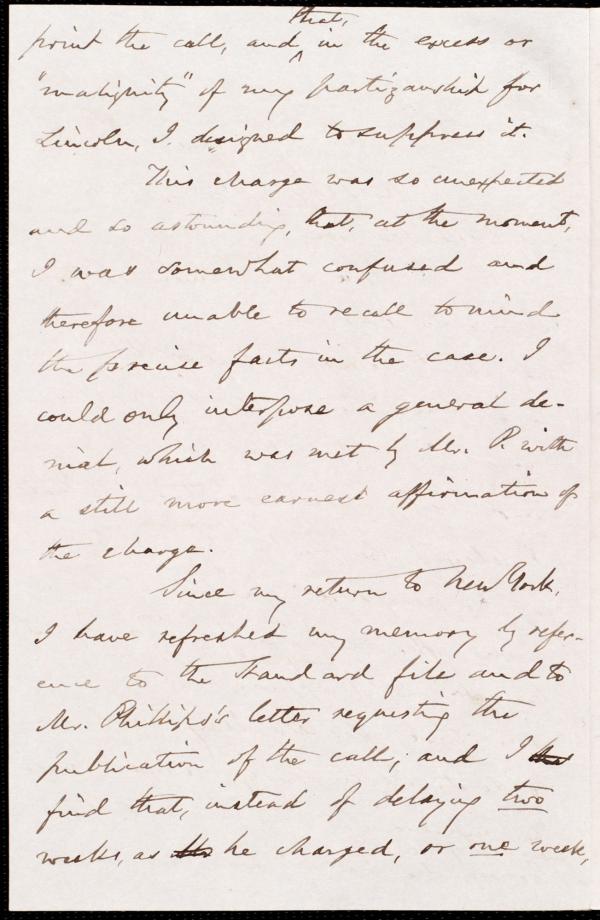 that,
print the call, and in the excess or
"malignity" of my partizanship for
Lincoln, I designed to suppress it.
This charge was so unexpected
and so astounding, that, at the moment,
I was somewhat confused and
therefore unable to recall to mind
the precise facts in the case. I
could only interpose a general de-
nial, which was met by Mr. P. with
a still more earnest affirmation of
the charge.
Since my return to New York,
I have refreshed my memory by refer-
ence to the Standard file and to
Mr. Phillips's letter requesting the
publication of the call; and I
find that, instead of delaying two
weeks, as he charged, or one week,